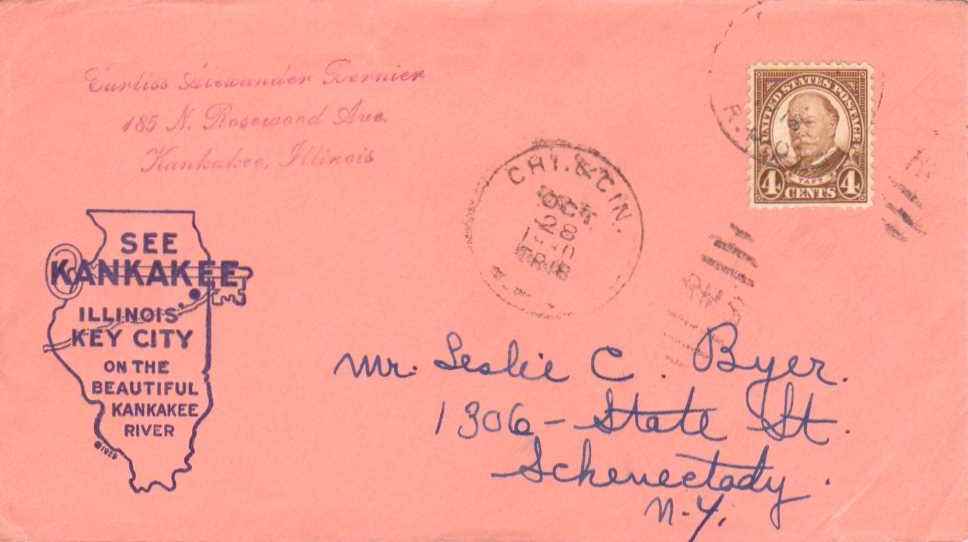 Curtiss Bernier
185 N. Rosewood Ave.
Kankakee, Illinois
SEE
KANKAKEE
ILLINOIS'
KEY CITY
ON THE
BEAUTIFUL
KANKAKEE
RIVER
©1929
CHI. & CIN.
OCT
28
UNITED STATES POSTAGE
TAFT
4 CENTS 4
Mr. Leslie C. Byer.
1306 - State St.
Schenectady.
N.Y.